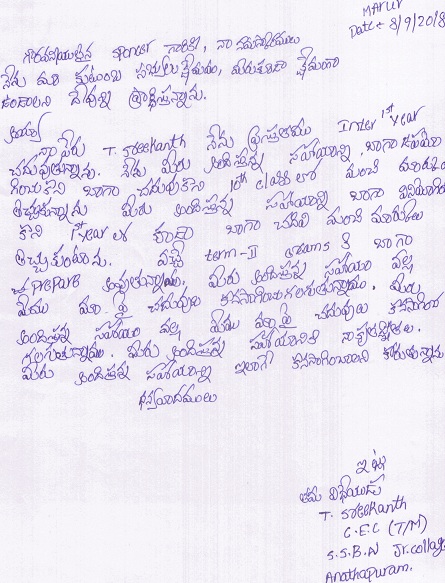 MARUR
Date: 8/9/2018
గౌరవనీయులైన sponser గారికి, నా నమస్కారములు
నేను మా కుటుంబ సభ్యులు క్షేమము, మీరుకూడా క్షేమంగా
ఉండాలని దేవుణ్ణి ప్రార్థిస్తున్నాను.
అయ్యా
నా పేరు T. Sreekanth నేను ప్రస్తుతము Inter 1st year
చదువుతున్నాను. నేను మీరు అందిస్తున్న సహాయాన్ని బాగా
బాగా చదువుకొని 10th class లో మంచి
తెచ్చుకున్నాను మీరు అందిస్తున్న సహాయాన్ని బాగా
కొని 1st year లో కూడా బాగా చదివి మంచి మార్కులు
తెచ్చుకుంటాను. వచ్చే term-II exams కి బాగా
prepare అవుతున్నాము, మీరు అందిస్తున్న సహాయం వల్ల
మేము మా పై చదువులు కొనసాగించుగలుగుతున్నాము. మీరు
అందిస్తున్న సహాయం వల్ల మేము మా పై చదువులు
గలుగుతున్నాము. మీరు అందిస్తున్న సహాయానికి నా కృతజ్ఞతలు.
మీరు అందిస్తున్న సహాయాన్ని ఇలాగే కొనసాగించాలని కోరుతున్నాను
ధన్యవాదములు
ఇట్లు
తమ విధేయుడు
T. Sreekanth
C.E.C (T/M)
S.S.B.N Jr.college
Anathapuram.